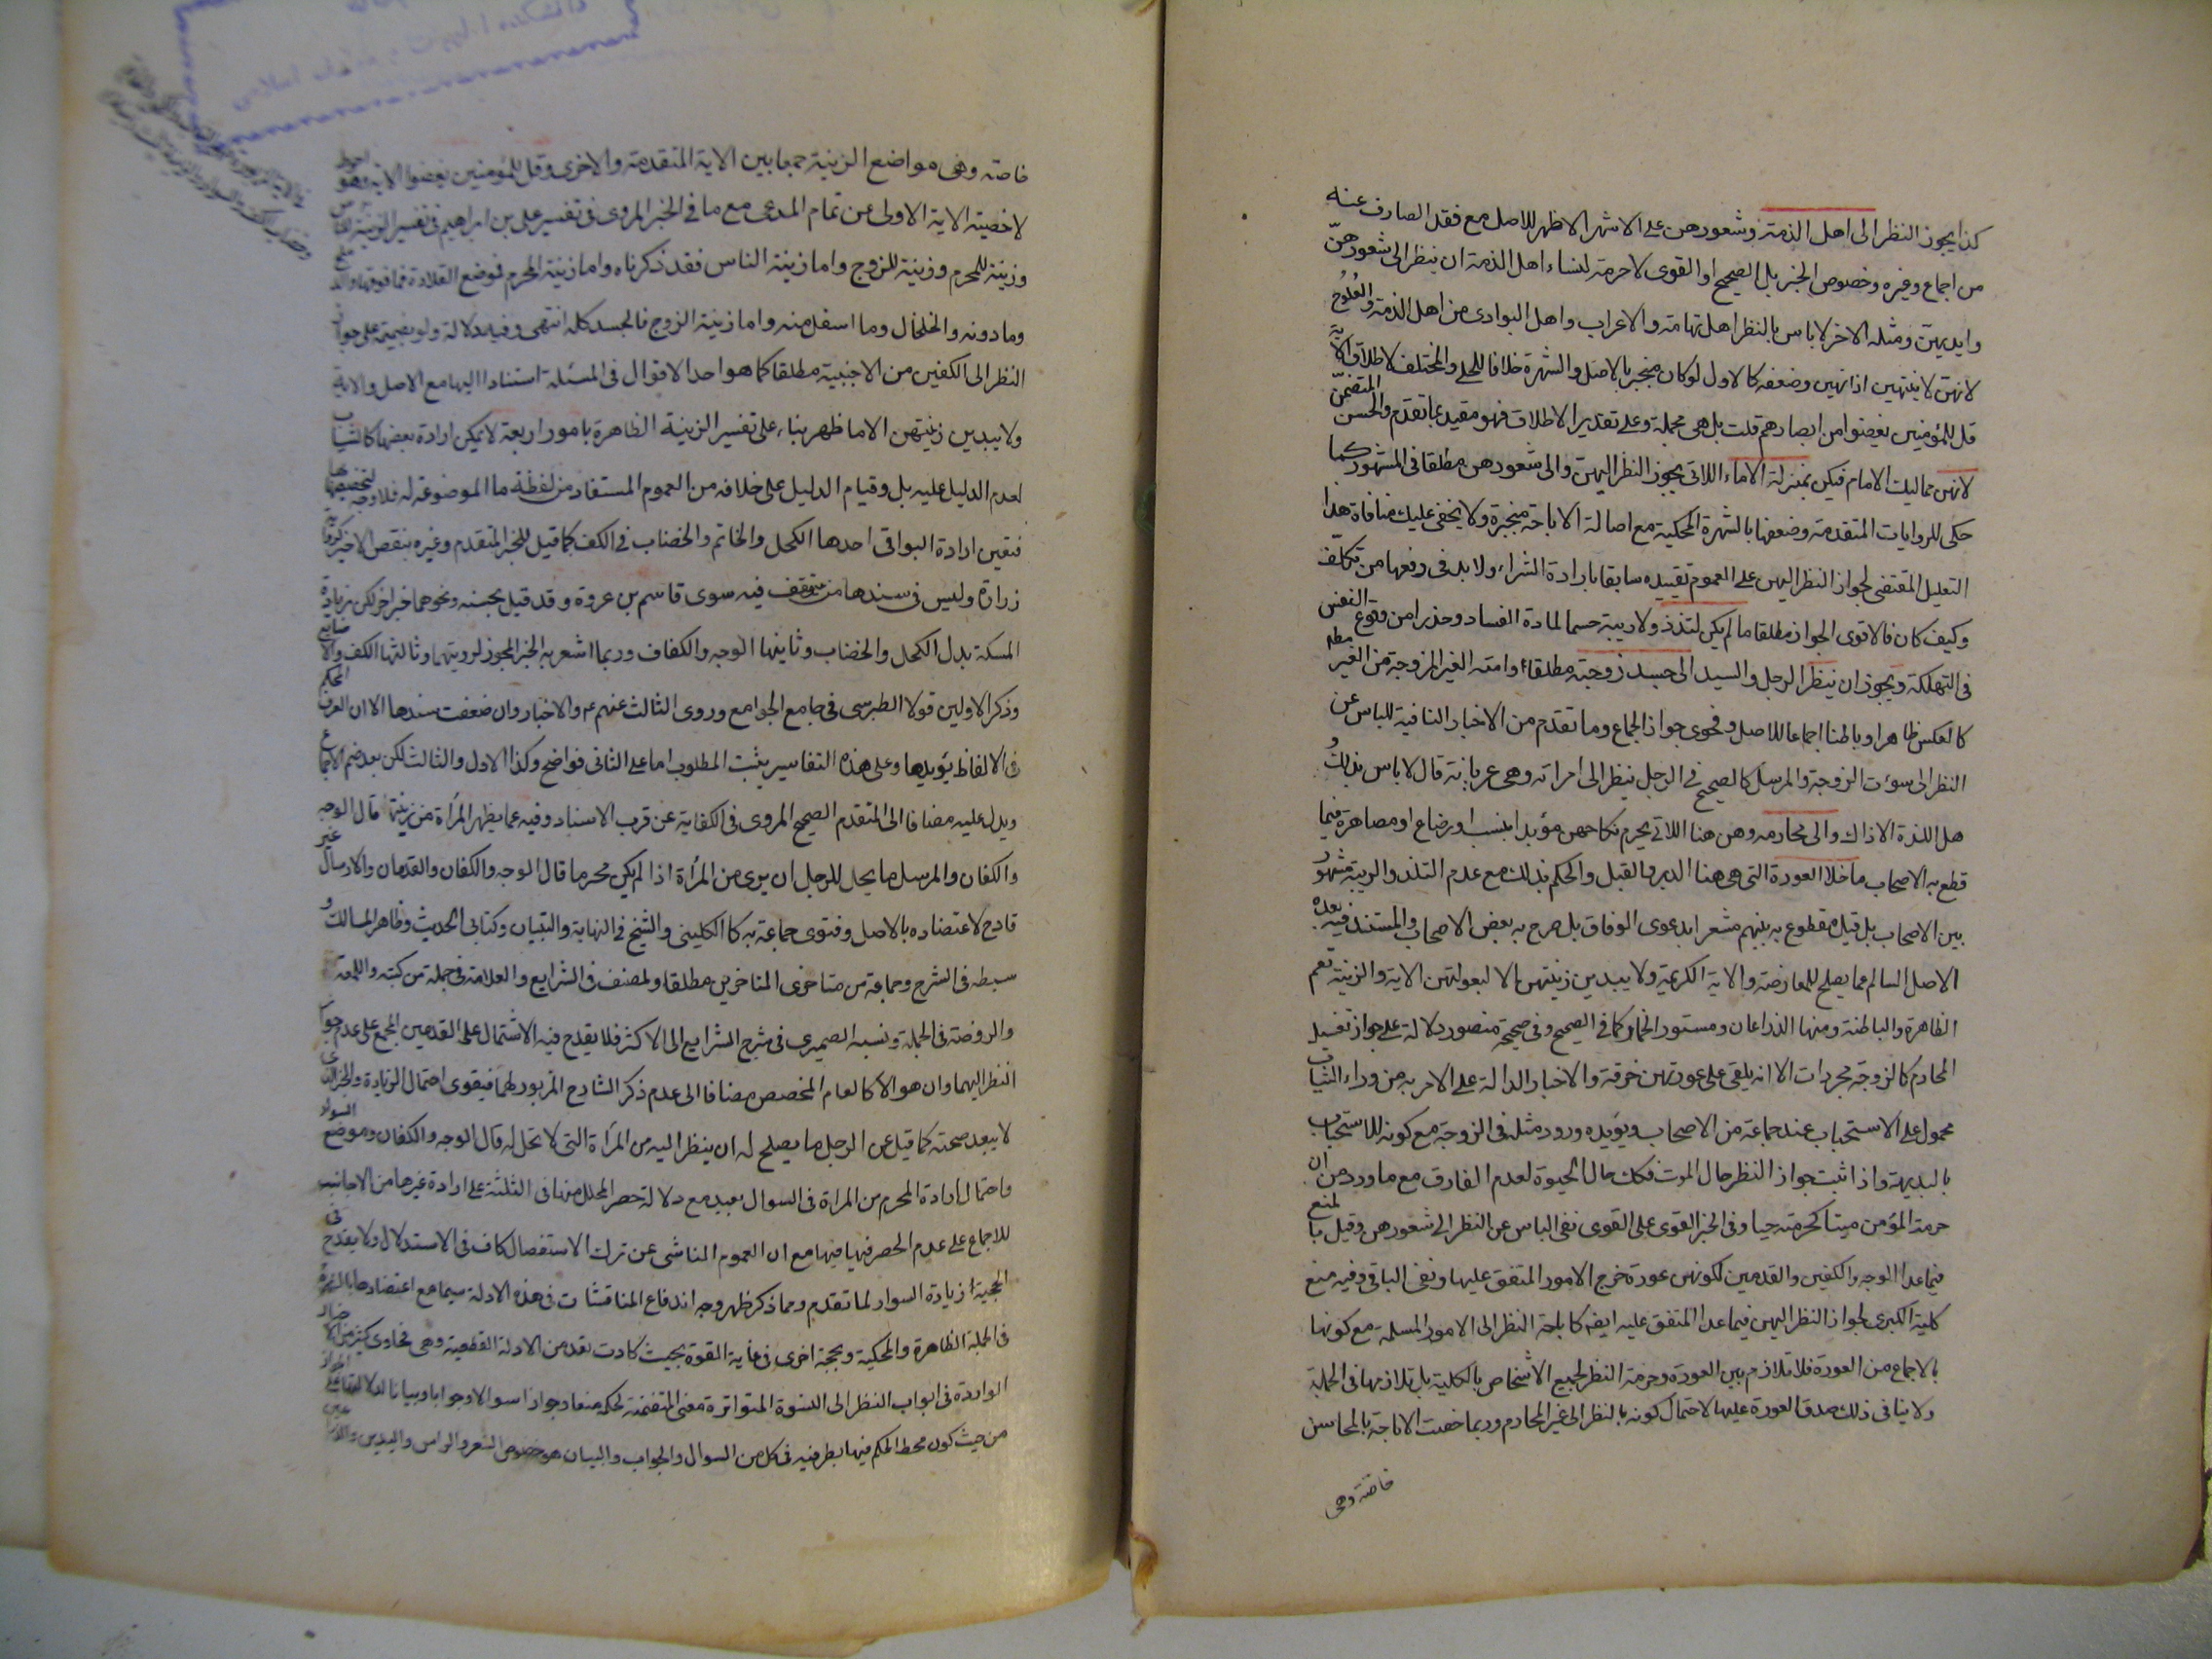 كذا يجوز النظر الى اهل الذمة وشعورهن على الاشهر الاظهر للاصل مع فقد الصارف عنه
من اجماع وغيره وخصوص الخبر بل الصحيح او القوى لا حرمة لنساء اهل الذمة ان ينظر الى شعورهنّ
وايديهن ومثله الاخر لا باس بالنظر اهل تهامة والاعراب واهل البوادى من اهل الذمة والعلوج
لانهن لا ينتهين اذا نهين وضعفه كالاول لو كان منجبر بالاصل والشهرة خلافا للحلى والمختلف لاطلاق الآية
قل للمؤمنين يغضوا من ابصارهم قلت بل هى مجملة وعلى تقدير الاطلاق فهو مقيد بما تقدم والحسن المتضمن
لانهن مماليك الامام فيكن بمنزلة الاماء اللاتى يجوز النظر اليهن والى شعورهن مطلقا فى المشهور كما
حكى للروايات المتقدمة وضعفها بالشهرة المحكية مع اصالة الاباحة منجبرة ولا يخفى عليك منافاة هذا
التعليل المقتضى لجواز النظر اليهن على العموم تقييده سابقا بارادة الشراء ولا بد فى دفعها من تكلف
وكيف كان فالاقوى الجواز مطلقا ما لم يكن لتلذذ ولا ريبة حسما لمادة الفساد وحذرا من وقوع النفس
فى التهلكة ويجوز ان ينظر الرجل والسيد الى جسد زوجته مطلقا وامته الغير المزوجة من الغير مطلقا
كالعكس ظاهرا وباطنا اجماعا للاصل وفحوى جواز الجماع وما تقدم من الاخبار النافية للباس عن
النظر الى سوءات الزوجة والمرسل كالصحيح فى الرجل ينظر الى امراته وهى عريانة قال لا باس بذلك و
هل اللذة الا ذاك والى محارمه وهن هنا اللاتى يحرم نكاحهن مؤبدا بنسب او رضاع او مصاهرة فيما
قطع به الاصحاب ما خلا العورة التى هى هنا الدبر والقبل والحكم بذلك مع عدم التلذذ والريبة مشهور
بين الاصحاب بل قيل مقطوع به بينهم مشعرا بدعوى الوفاق بل صرح به بعض الاصحاب والمستند فيه بعده
الاصل السالم عما يصلح للمعارضة والاية الكريمة ولا يبدين زينتهن الا لبعولتهن الاية والزينة تعم
الظاهرة والباطنة ومنها الذراعان ومستور الخمار كما فى الصحيح وفى صحيحة منصور دلالة على جواز تغسيل
المحارم كالزوجة مجردات الا انه يلقى على عورتهن خرقة والاخبار الدالة على الامر به من وراء الثياب
محمول على الاستحباب عند جماعة من الاصحاب ويؤيده ورود مثله فى الزوجة مع كونه للاستحباب
بالبديهة واذا ثبت جواز النظر حال الموت فكك حال الحيوة لعدم الفارق مع ما ورد من ان
حرمة المؤمن ميتا كحرمته حيا وفى الخبر القوى على القوى نفى الباس عن النظر الى شعورهن وقيل بالمنع
فيما عدا الوجه والكفين والقدمين لكونهن عورة خرج الامور المتفق عليها وبقى الباقى وفيه منع
كلية الكبرى لجواز النظر اليهن فيما عدا المتفق عليه ايضا كاباحة النظر الى الامور المسلمة مع كونها
بالاجماع من العورة فلا تلازم بين العورة وحرمة النظر لجميع الاشخاص بالكلية بل تلازمها فى الجملة
ولا ينافى ذلك صدق العورة عليها لاحتمال كونه بالنظر الى غير المحارم وربما خصت الاباحة بالمحاسن
خاصة وهى
خاصة وهى مواضع الزينة جمعا بين الاية المتقدمة والاخرى وقل للمؤمنين يغضوا الاية وهو احوط
لاخصية الاية الاولى عن تمام المدعى مع ما فى الخبر المروى فى تفسير على بن ابراهيم فى تفسير الزينة للناس
وزينة للمحرم وزينة للزوج واما زينة الناس فقد ذكرناه واما زينة المحرم فموضع القلادة فما فوقها والدملج
وما دونه والخلخال وما اسفل منه واما زينة الزوج فالجسد كله انتهى وفيه دلالة ولو بضميمة على جواز
النظر الى الكفين من الاجنبية مطلقا كما هو احد الاقوال فى المسئلة استنادا اليها مع الاصل والاية
ولا يبدين زينتهن الا ما ظهر بناء على تفسير الزينة الظاهرة بامور اربعة لا يمكن ارادة بعضها كالثياب
لعدم الدليل عليه بل وقيام الدليل على خلافه من العموم المستفاد من لفظة ما الموضوعة له فلا وجه لتخصيصها
فتعين ارادة البواقى احدها الكحل والخاتم والخضاب فى الكف كما قيل للخبر المتقدم وغيره بنقص الاخير كرواية
زرارة وليس فى سندها من يتوقف فيه سوى قاسم بن عروة وقد قيل بحسنه ونحوهما خبر اخر لكن بزيادة
المسكة بدل الكحل والخضاب وثانيها الوجه والكفان وربما اشعر به الخبر المجوز لرويتهما وثالثها الكف والاصابع
وذكر الاولين قولا الطبرسى فى جامع الجوامع وروى الثالث عنهم ع والاخبار وان ضعفت سندها الا ان العرف المحكم
فى الالفاظ يؤيدها وعلى هذه التفاسير يثبت المطلوب اما على الثانى فواضح وكذا الاول والثالث لكن بعد ضم الاجماع
ويدل عليه مضافا الى المتقدم الصحيح المروى فى الكفاية عن قرب الاسناد وفيه عما يظهر المراة من زينتها قال الوجه
والكفان والمرسل ما يحل للرجل ان يرى من المراة اذا لم يكن محرما قال الوجه والكفان والقدمان والارسال غير
قادح لاعتضاده بالاصل وفتوى جماعة به كالكلينى والشيخ فى النهاية والتبيان وكتابى الحديث وظاهر المسالك و
سبطه فى الشرح وجماعة من متاخرى المتاخرين مطلقا ولمصنف فى الشرايع والعلامة فى جملة من كتبه واللمعة
والروضة فى الجملة ونسبه الصيمرى فى شرح الشرايع الى الاكثر فلا يقدح فيه الاشتمال على القدمين المجمع على عدم جواز
النظر اليهما وان هو الا كالعام المخصص مضافا الى عدم ذكر الشارح المزبور لهما فيقوى احتمال الزيادة والخبر الذى
لا يبعد صحته كما قيل عن الرجل ما يصلح له ان ينظر اليه من المراة التى لا تحل له قال الوجه والكفان وموضع السوار
واحتمال ارادة المحرم من المراة فى السوال بعيد مع دلالة حصر المحلل منها فى الثلثة على ارادة غيرها من الاجانب
للاجماع على عدم الحصر فيها فيها مع ان العموم الناشى عن ترك الاستفصال كاف فى الاستدلال ولا يقدح فى
الحجية زيادة السوار لما تقدم ومما ذكر ظهر وجه اندفاع المناقشات فى هذه الادلة سيما مع اعتضادها بالشهرة
فى الجملة الظاهرة والمحكية وبحجة اخرى فى غاية القوة بحيث كادت تعد من الادلة القطعية وهى فحاوى كثير من الاخبار
الواردة فى ابواب النظر الى النسوة المتواترة معنى المتضمنة لحكمه منعا وجوازا سوالا وجوابا وبيانا
من حيث كون محط الحكم فيها بطرفيه فى كل من السوال والجواب والبيان هو خصوص الشعر والراس واليدين